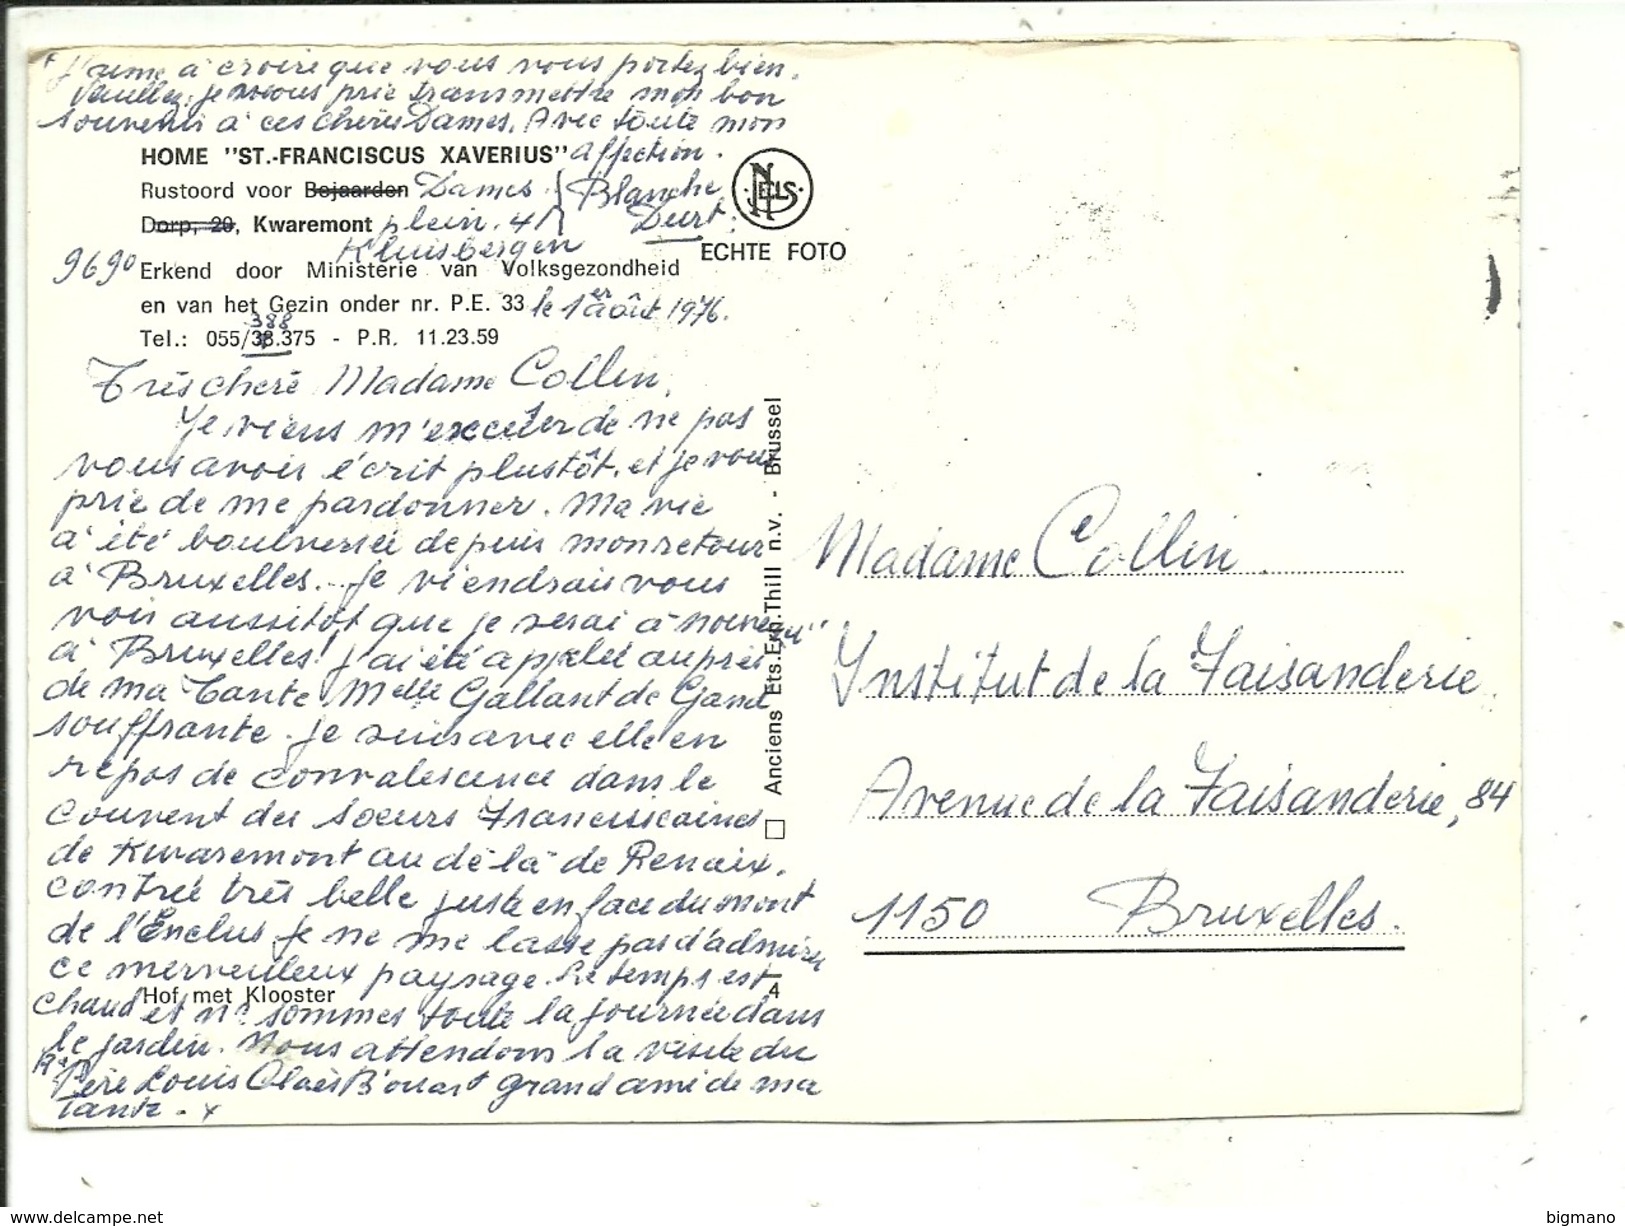 + J'aime à croire que vous vous portez bien.
Veuillez, je vous prie transmettre mon bon
souvenir à ces chères Dames. Avec toute mon
affection.
HOME "ST.-FRANCISCUS XAVERIUS"
Rustoord voor Bejaarden Dames
Blanche
Durt.
Dorp, 20, Kwaremont plein. 41
Kluisbergen
NELS
ECHTE FOTO
9690
Erkend door Ministerie van Volksgezondheid
en van het Gezin onder nr. P.E. 33 le 1er août 1976.
388
Tel.: 055/38.375 - P.R. 11.23.59
Très chère Madame Collin,
Je viens m'excuser de ne pas
vous avoir écrit plustôt. et je vous
prie de me pardonner. Ma vie
a été boulversée depuis mon retour
à Bruxelles... Je viendrais vous
voir aussitôt que je serai à nouveau
à Bruxelles! J'ai été appelée auprès
de ma Tante Melle Gallant de Gand
souffrante. Je suis avec elle en
repos de convalescence dans le
Couvent des soeurs Franciscaines
de Kwaremont au dé là de Renaix.
contrée très belle juste en face du mont
de l'Enclus je ne me lasse pas d'admirer
ce merveilleux paysage. Le temps est
chaud et ns sommes toute la journée dans
le jardin. Nous attendons la visite du
Rd Père Louis Claes Bonaert grand ami de ma
Tante. x
Hof met Klooster
4
Anciens Ets. Ern. Thill n.v. - Brussel
Madame Collin.
Institut de la Faisanderie
Avenue de la Faisanderie, 84
1150 Bruxelles.
www.delcampe.net
bigmano